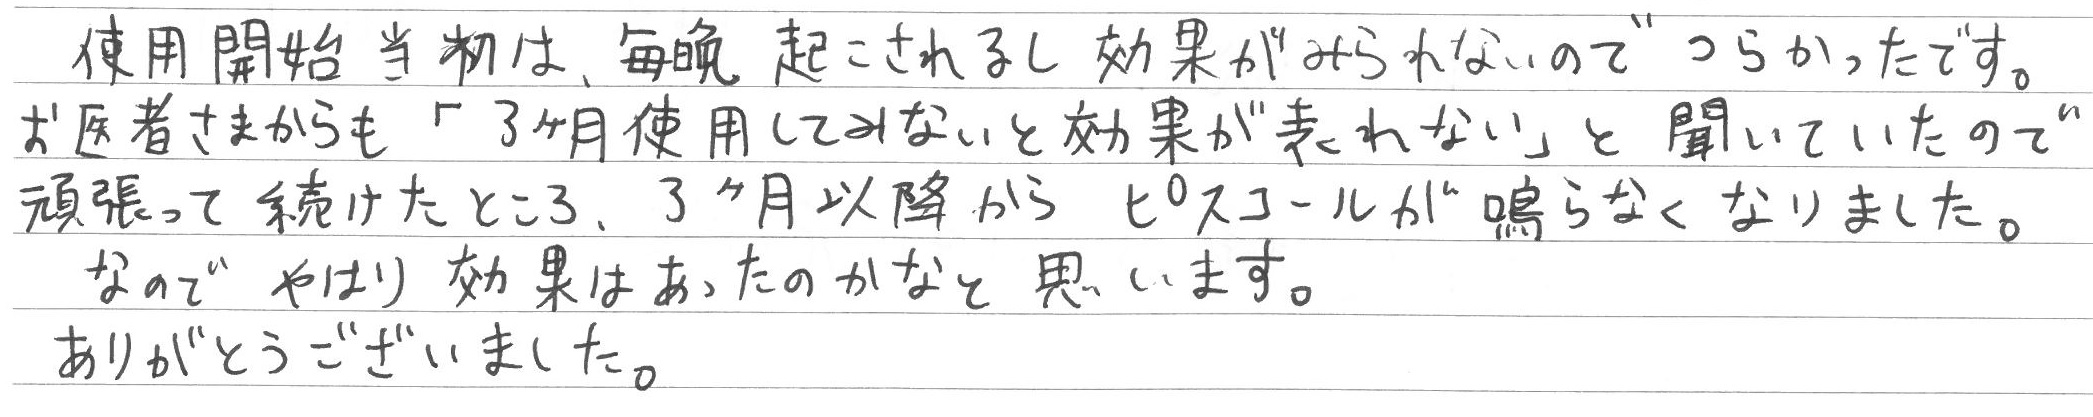 使用開始当初は、毎晩起こされるし効果がみられないのでつらかったです。
お医者さまからも「3ヶ月使用してみないと効果が表れない」と聞いていたので
頑張って続けたところ、3ヶ月以降からピスコールが鳴らなくなりました。
なのでやはり効果はあったのかなと思います。
ありがとうございました。